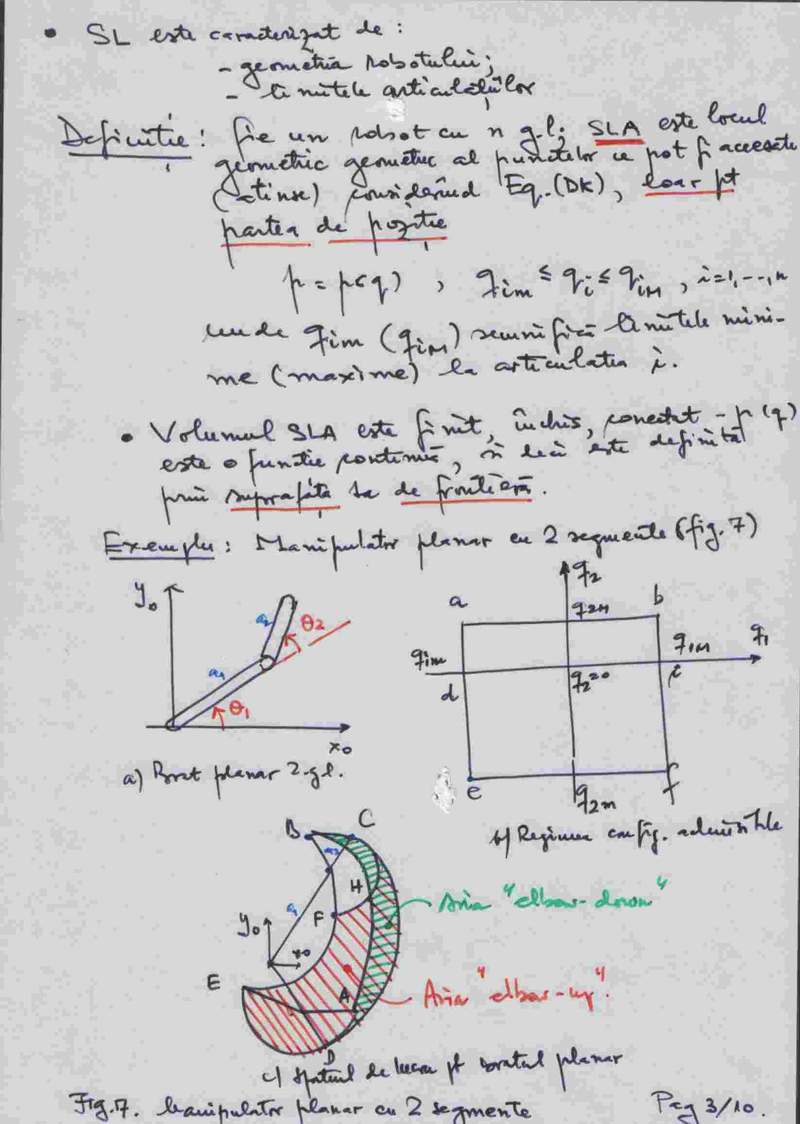 • SL este caracterizat de :
- geometria robotului;
- limitele articulațiilor
Definiție : fie un robot cu n g.l; SLA este locul
geometric geometric al punctelor ce pot fi accesate
(atinse) considerînd Eq.(DK), doar pt
partea de poziție
p = p(q) , qim ≤ qi ≤ qiM , i=1,--,n
unde qim (qiM) semnifică limitele mini-
me (maxime) la articulatia i.
• Volumul SLA este finit, închis, conectat - p(q)
este o funcție continuă, și deci este definită
prin suprafața sa de frontieră.
Exemplu : Manipulator planar cu 2 segmente (fig. 7)
y0
a2
θ2
a1
θ1
x0
a) Braț planar 2 gl.
q2
a
q2M
b
qim
q1M
q1
d
q2=0
c
e
q2m
f
b) Regiunea config. admisibile
B
C
a2
a1
H
F
y0
x0
E
A
D
Aria "elbow-down"
Aria "elbow-up".
c) Spațiul de lucru pt brațul planar
Fig.7. Manipulator planar cu 2 segmente
Pag 3/10.